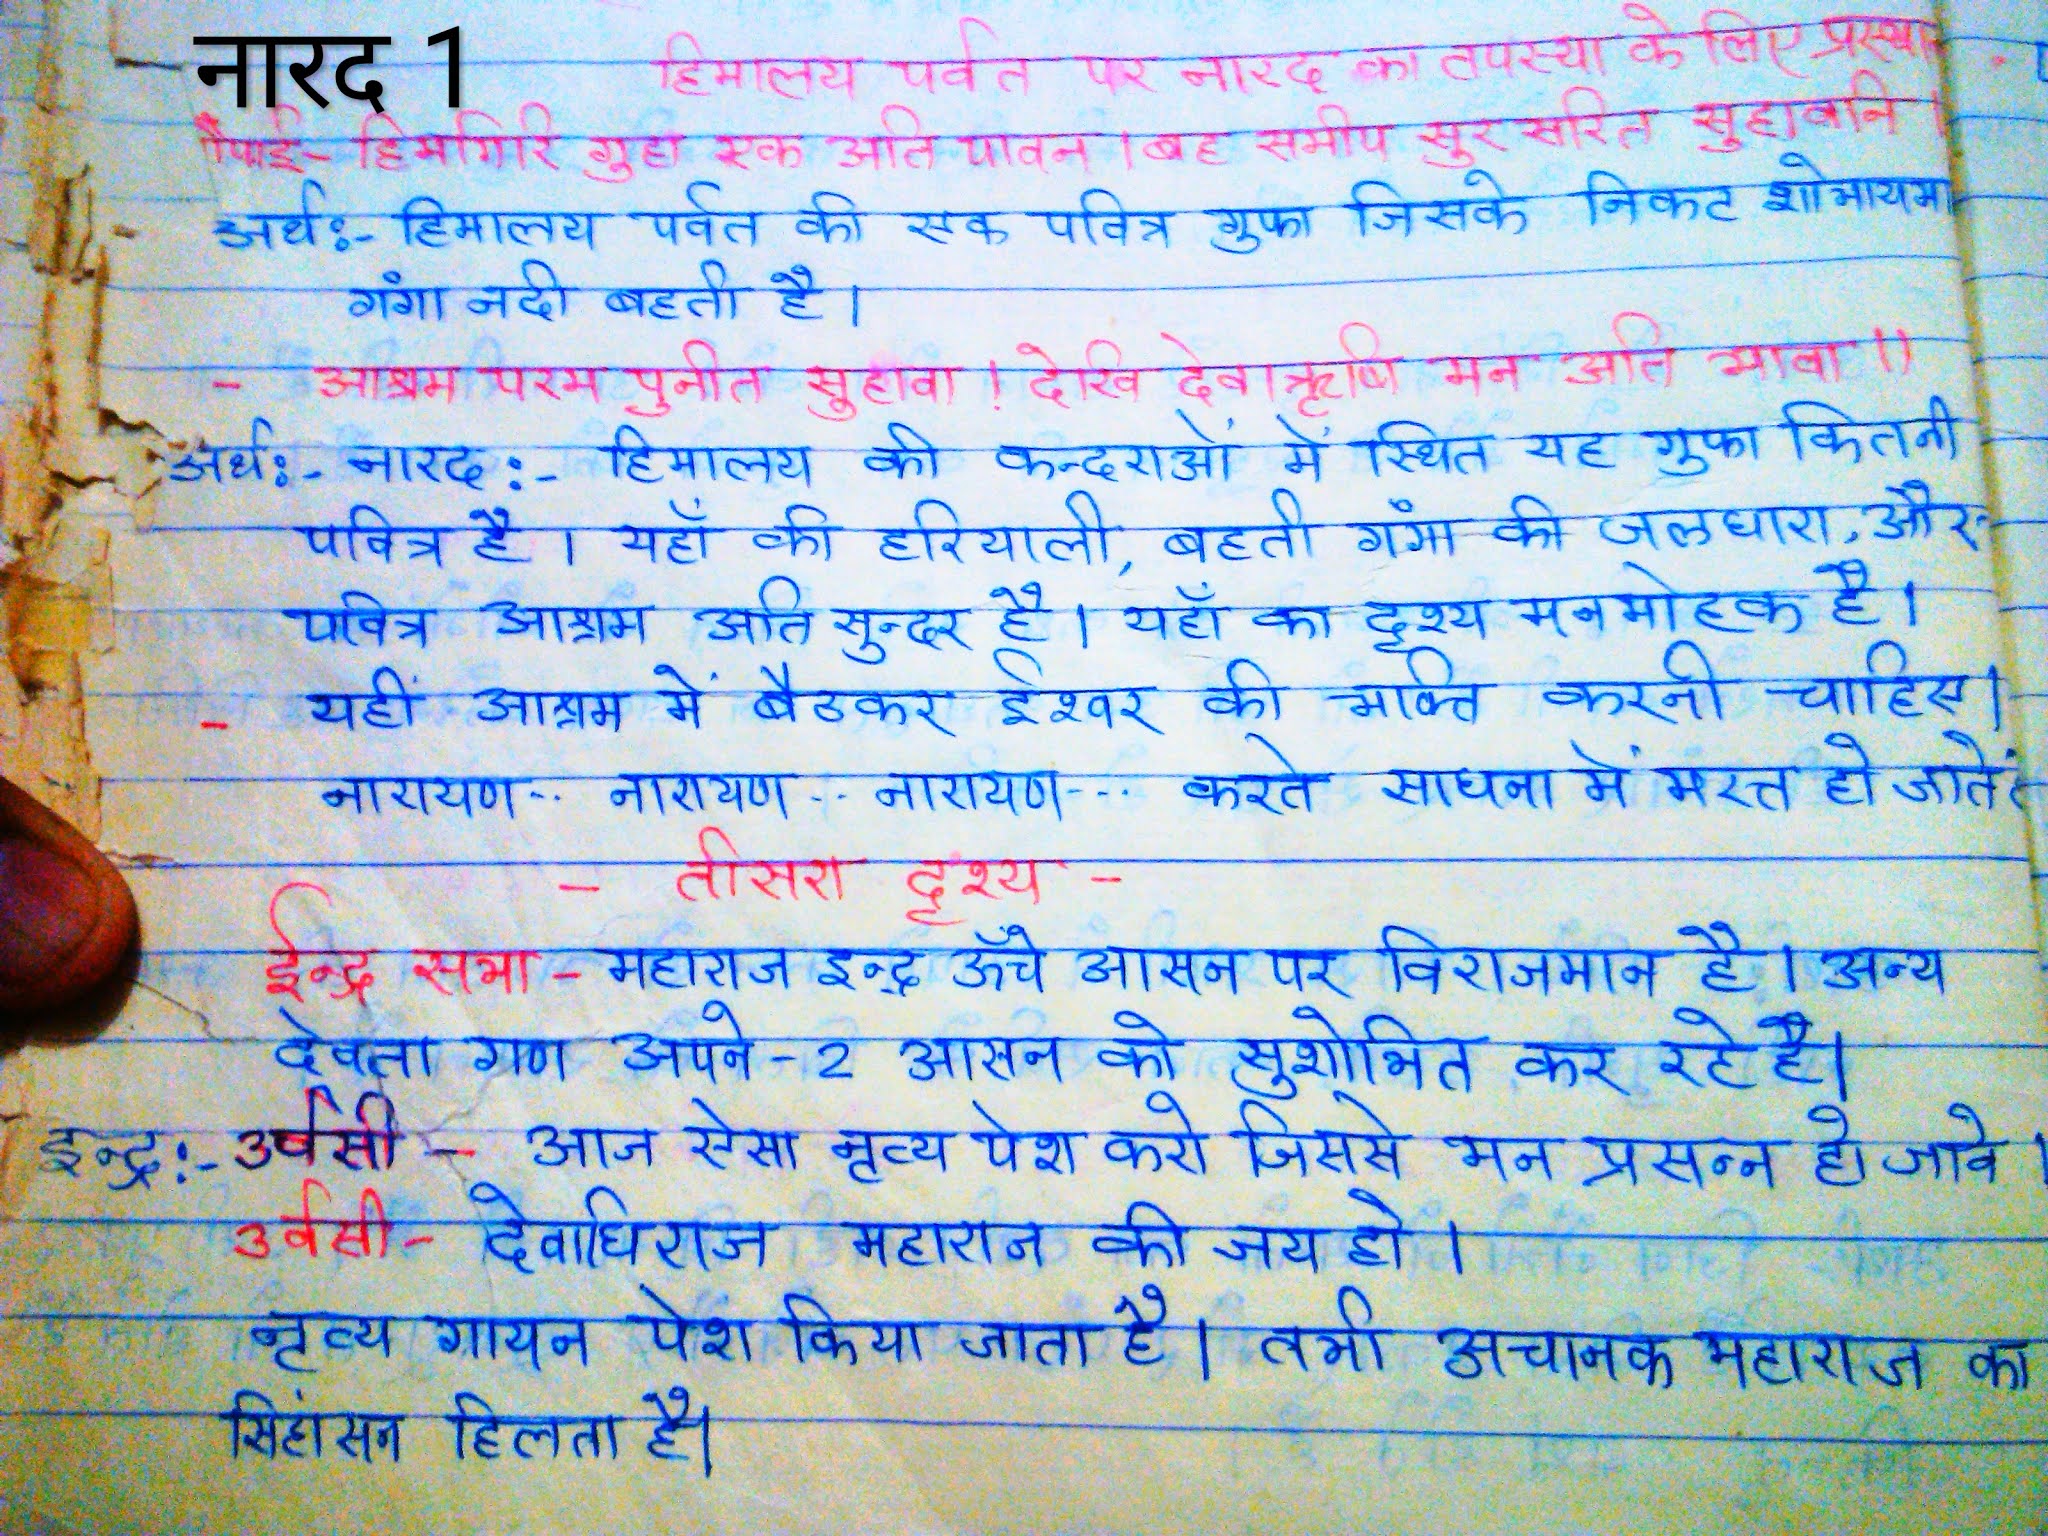 नारद 1
हिमालय पर्वत पर नारद का तपस्या के लिए प्रस्थान
चौपाई- हिमगिरि गुहा एक अति पावन । बह समीप सुर सरित सुहावनि ।
अर्थः- हिमालय पर्वत की एक पवित्र गुफा जिसके निकट शोभायमा
गंगा नदी बहती है ।
- आश्रम परम पुनीत सुहावा । देखि देवऋषि मन अति भावा ॥
अर्थः- नारदः- हिमालय की कन्दराओं में स्थित यह गुफा कितनी
पवित्र है । यहाँ की हरियाली, बहती गंगा की जलधारा, और
पवित्र आश्रम अति सुन्दर है । यहाँ का दृश्य मनमोहक है ।
- यहीं आश्रम में बैठकर ईश्वर की भक्ति करनी चाहिए ।
नारायण.. नारायण... नारायण--.. करते साधना में मस्त हो जाते
- तीसरा दृश्य -
ईन्द्र सभा - महाराज इन्द्र ऊँचे आसन पर विराजमान है । अन्य
देवता गण अपने-2 आसन को सुशोभित कर रहे है ।
इन्द्रः- उर्वसी - आज ऐसा नृत्य पेश करो जिससे मन प्रसन्न हो जावे ।
उर्वसी- देवाधिराज महाराज की जय हो ।
नृत्य गायन पेश किया जाता है । तभी अचानक महाराज का
सिहांसन हिलता है।